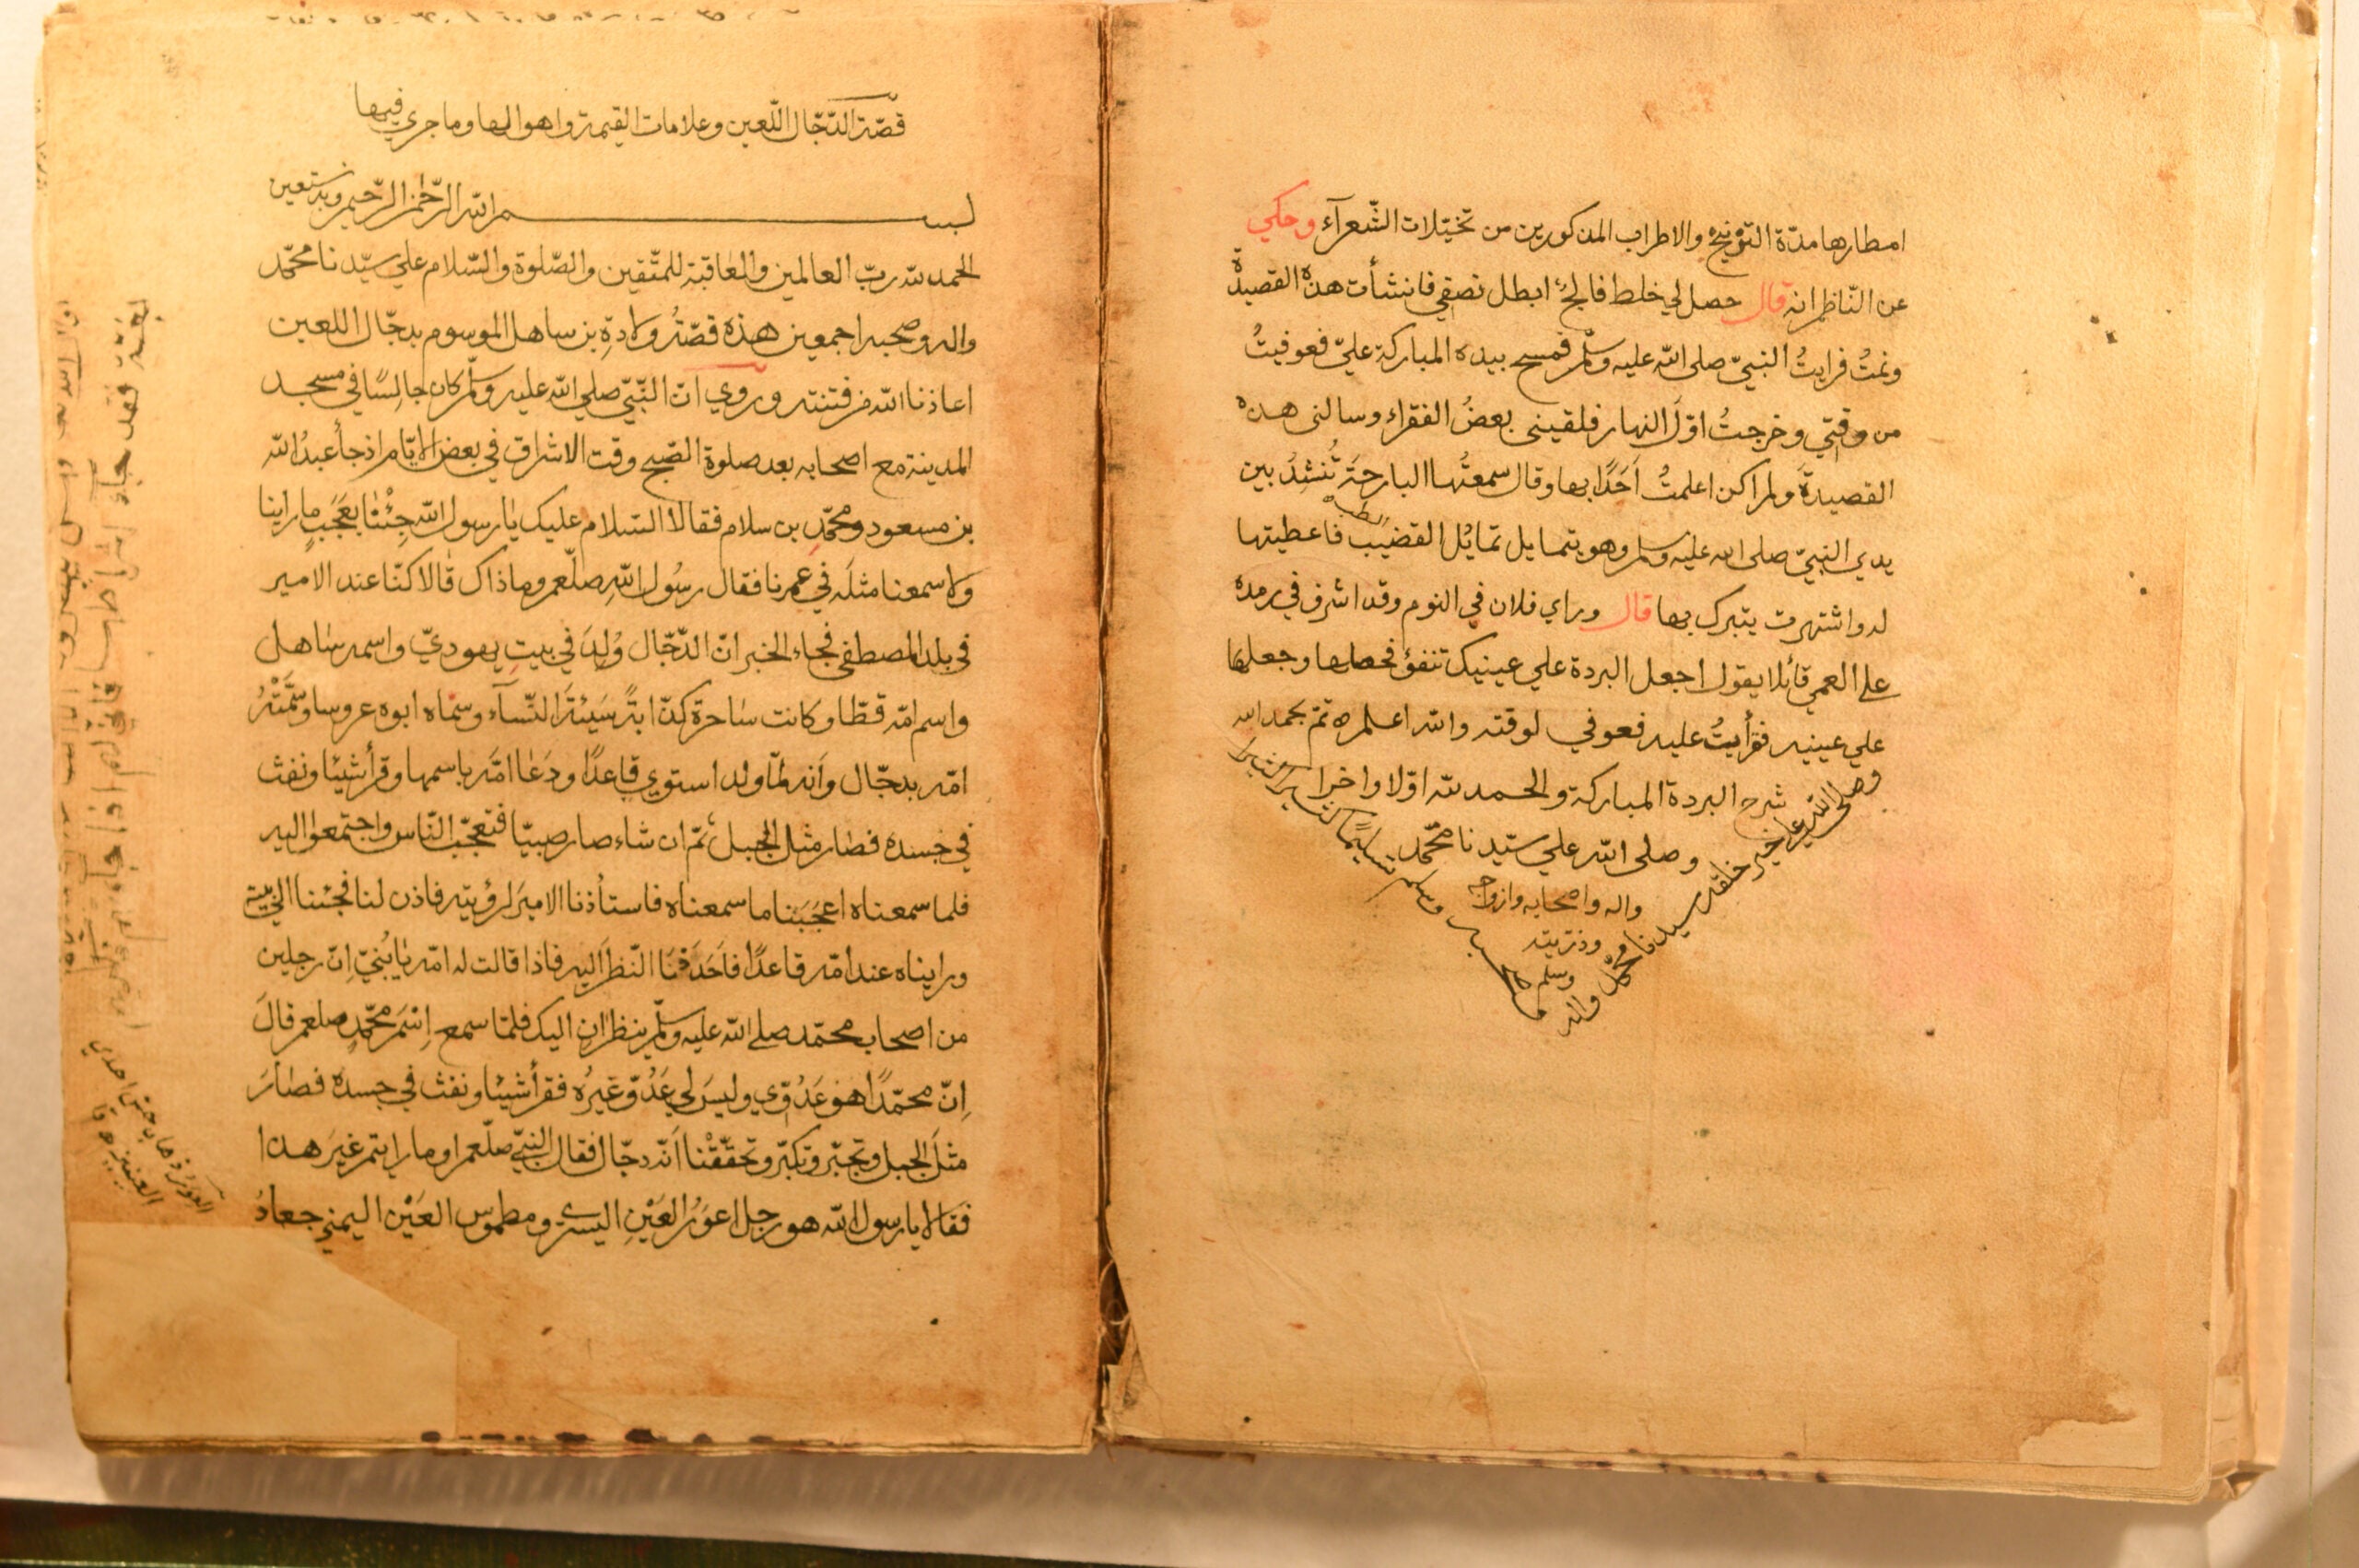 امطارها مدّة الترنيح والاطراب المذكورين من تخيّلات الشّعرآء وحكي
عن النّاظم انه قال حصل لي خلط فالج ابطل نصفي فانشأت هذه القصيدة
ونمتُ فرايتُ النبيّ صلى الله عليه وسلّم فمسح بيده المباركة عليّ فعوفيتُ
من وقتي وخرجتُ اوّلَ النهار فلقيني بعضُ الفقراء وسالني هذه
القصيدةَ ولم اكن اعلمتُ اَحَدًا بها وقال سمعتُها البارحَة تُنشِدُ بين
يدي النبيّ صلى الله عليه وسلم وهو يتمايل تمايُل القضيب فاعطيتها
له واشتهرت يتبرك بها قال وراي فلان في النوم وقد اشرف في رمده
على العمي قائلا يقول اجعل البردة علي عينيك فحصلها وجعلها
علي عينيه فقرأيتُ عليه فعوفي لوقته والله اعلم تمّ بحمد الله
شرح البردة المباركة والحمد لله اوّلا واخرا
وصلى الله علي سيّدنا محمّد
واله واصحابه وازواجه
وذريته
وسلم
وصلى الله علي خير خلقه سيدنا محمّد واله
وسلم تسليمًا كثيرا كثيرا
قصّة الدّجّال اللّعين وعلامات القيمة واهوالها وما جري فيها
بسم الله الرّحمن الرّحيم وبه نستعين
الحمد لله ربّ العالمين والعاقبة للمتّقين والصّلوة والسّلام علي سيّدنا محمّد
واله وصحبه اجمعين هذه قصّةُ ولادةِ بن ساهل الموسوم بدجّال اللعين
اعاذنا الله من فتنته وروي انّ النّبّيّ صلي الله عليه وسلّم كان جالِسًا في مسجد
المدينة مع اصحابه بعد صلوة الصّبح وقت الاشراق في بعض الايّام اذ جأ عبدُ الله
بن مسعود ومحمّدِ بن سلام فقالا السّلام عليك يا رسول الله جِئْنا بعَجَبٍ ما راينا
ولا سمعنا مثلَه في عمرنا فقال رسُول اللهِ صلّعم وما ذاك قالا كنّا عند الامير
في بلد المصطفي فجاء الخبر انّ الدّجّال وُلِدَ في بيتِ يهوديّ واسمه ساهل
واسم امّه قطّا وكانت سَاحرة كذّابةً سَيئةَ النّسآء وسمّاه ابوه عروسا وسَمَّتْهُ
امّه بدجّال وَانه لمّا ولد استوي قاعدًا ودَعا امَّه باسمها وقرأ شيئا ونفث
في جسده فصار مثل الجبل ثمّ ان شاء صار صبيّا فتعجّب النّاس واجتمعوا اليه
فلما سمعناه اعجَبَنا ما سمعناه فاستأذنا الاميرَ لرؤيته فاذن لنا فجئنا الي بيته
ورايناه عند امّه قاعدًا فاَحَدَقْنَا النّظَرَ اليه فاذا قالت له امّه يا بُنيّ اِنّ رجلين
من اصحاب محمّد صلي الله عليه وسلّم ينظرانِ اليك فلمّا سمع اِسْمَ محمّدٍ صلعم قالَ
اِنّ محمّدًا هو عَدُوّي وليسَ لي عَدُوّ غَيرُه فقرأ شيئا ونفث في جسده فصَارَ
مثلَ الجبل وتجبّر وتكبّر وتحقّقْنا اَنّه دجّال فقال النّبيّ صلّعم او ما رايتم غيرَ هذا
فقالا يا رسول الله هو رجل اعوَرُ العَيْنِ اليسرى ومطموس العَيْن اليمني جعادُ